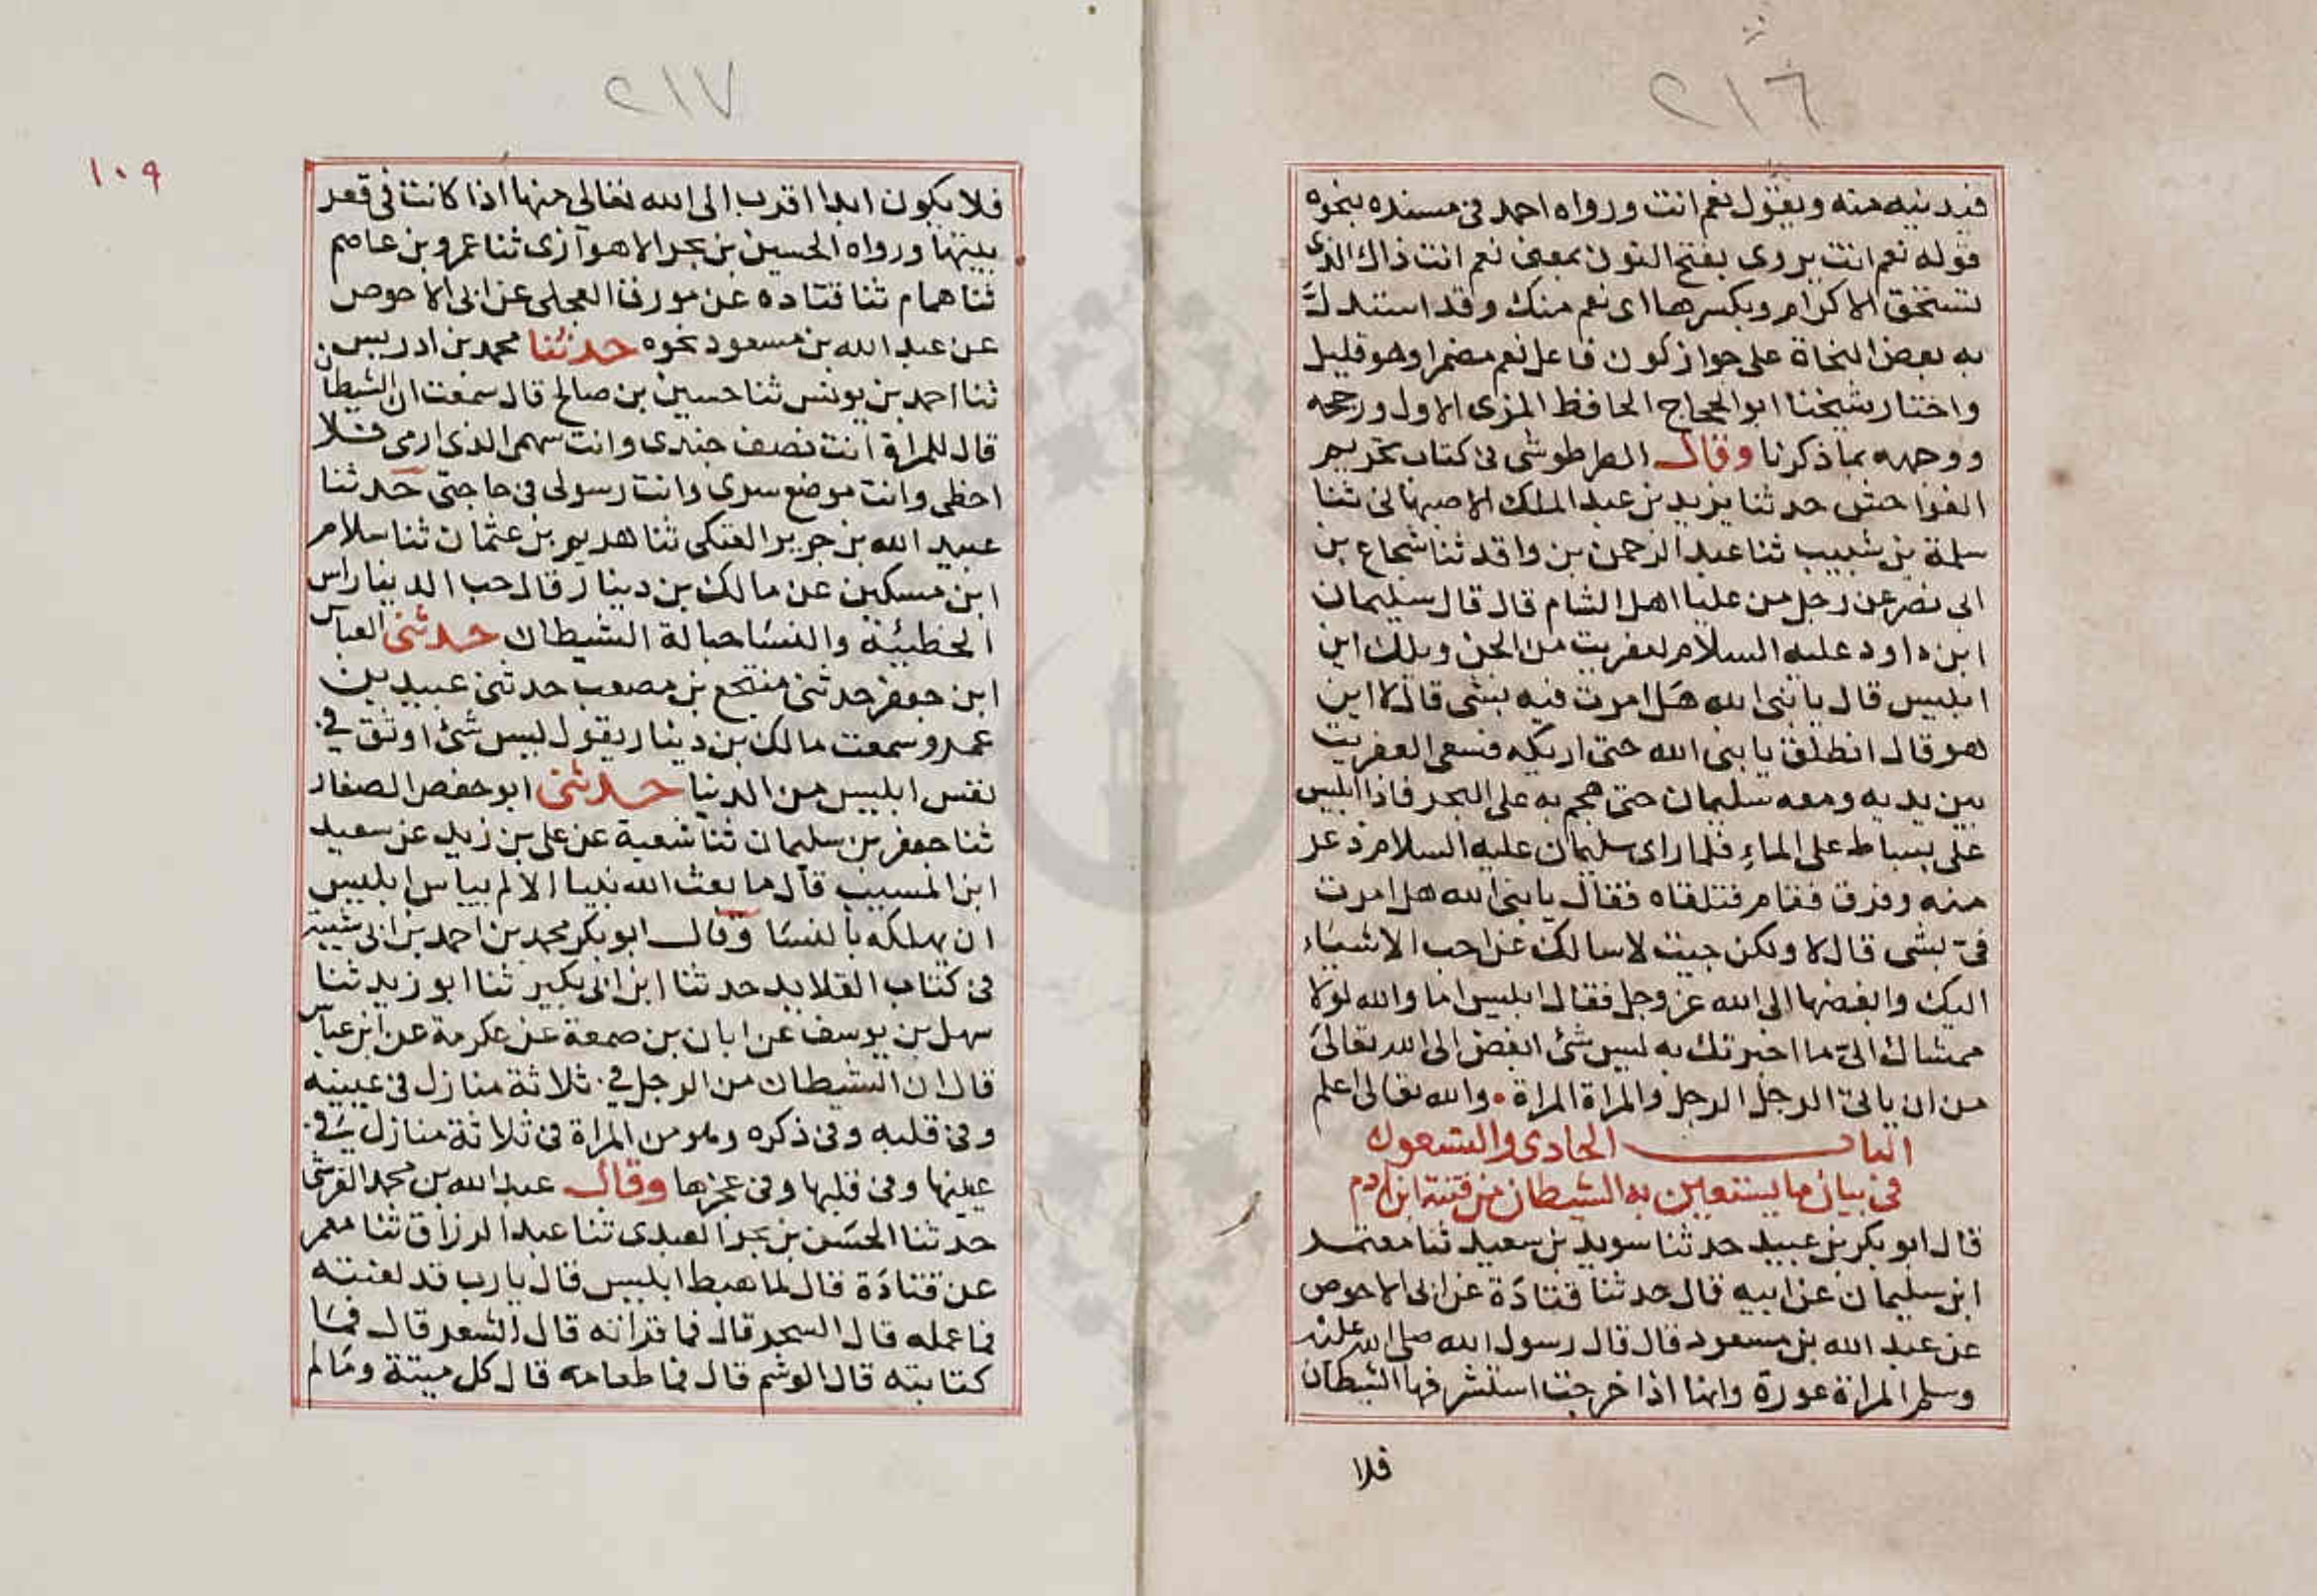 ٢١٦
فيدنيه منه ويقول نعم انت ورواه احمد في مسنده بنحوه
قوله نعم انت يروى بفتح النون بمعنى نعم انت ذاك الذى
تستحق الاكرام وبكسرها اى نعم منك وقد استدل
به بعض النحاة على جواز كون فاعل نعم مضمرا وهو قليل
واختار شيخنا ابو الحجاج الحافظ المزى الاول ورجحه
ووجهه بما ذكرنا وقال الطرطوشى فى كتاب تحريم
الفواحش حدثنا يزيد بن عبد الملك الاصبهانى ثنا
سلمة بن شبيب ثنا عبد الرحمن بن واقد ثنا شجاع بن
ابى نصر عن رجل من علما اهل الشام قال قال سليمان
ابن داود عليه السلام لعفريت من الجن ويلك اين
ابليس قال يا نبى الله هل امرت فيه بشى قال لا اين
هو قال انطلق يا نبى الله حتى اريكه فسعى العفريت
بين يديه ومعه سليمان حتى هجم به على البحر فاذا ابليس
على بساط على الماء فلما راى سليمان عليه السلام ذعر
منه وفرق فقام فتلقاه فقال يا نبى الله هل امرت
فىّ بشى قال لا ولكن جيت لاسالك عن احب الاشياء
اليك وابغضها الى الله عز وجل فقال ابليس اما والله لولا
ممشاك الىّ ما اخبرتك به ليس شئ ابغض الى الله تعالى
من ان ياتى الرجل الرجل والمراة المراة . والله تعالى اعلم
الباب الحادى والتسعون
فى بيان ما يستعين به الشيطان من فتنة ابن ادم
قال ابو بكر بن عبيد حدثنا سويد بن سعيد ثنا معتمر
ابن سليمان عن ابيه قال حدثنا قتادة عن ابى الاحوص
عن عبد الله بن مسعود قال قال رسول الله صلى الله عليه
وسلم المراة عورة وانها اذا خرجت استشرفها الشيطان
فلا
٢١٧
١٠٩
فلا يكون ابدا اقرب الى الله تعالى منها اذا كانت فى قعر
بيتها ورواه الحسين بن بحر الاهوازى ثنا عمرو بن عاصم
ثنا همام ثنا قتاده عن مورق العجلى عن ابى الاحوص
عن عبد الله بن مسعود نحوه حدثنا محمد بن ادريس
ثنا احمد بن يونس ثنا حسين بن صالح قال سمعت ان الشيطان
قال للمراة انت نصف جندى وانت سهمى الذى ارمى فلا
اخطى وانت موضع سرى وانت رسولى فى حاجتى حدثنا
عبيد الله بن جرير العتكى ثنا هديم بن عثمان ثنا سلام
ابن مسكين عن مالك بن دينار قال حب الدينار اس
الخطيئة والنسا حبالة الشيطان حدثنى العباس
ابن جعفر حدثنى منتجع بن مصعب حدثنى عبيد بن
عمرو سمعت مالك بن دينار يقول ليس شئ اوثق فى
نفس ابليس من الدنيا حدثنى ابو حفص الصفار
ثنا جعفر بن سليمان ثنا شعبة عن على بن زيد عن سعيد
ابن المسيب قال ما بعث الله نبيا الا لم يياس ابليس
ان يهلكه بالنسا وقال ابو بكر محمد بن احمد بن ابى شيبة
فى كتاب القلايد حدثنا ابن ابى بكير ثنا ابو زيد ثنا
سهل بن يوسف عن ابان بن صمعة عن عكرمة عن ابن عباس
قال ان الشيطان من الرجل فى ثلاثة منازل فى عينيه
وفى قلبه وفى ذكره وهو من المراة فى ثلاثة منازل فى
عينها وفى قلبها وفى عجزها وقال عبد الله بن محمد القرشى
حدثنا الحسن بن بحر العبدى ثنا عبد الرزاق ثنا معمر
عن قتادة قال لما هبط ابليس قال يا رب قد لعنته
فما عمله قال السحر قال فما قرانه قال الشعر قال فما
كتابته قال الوشم قال فما طعامه قال كل ميتة وما لم